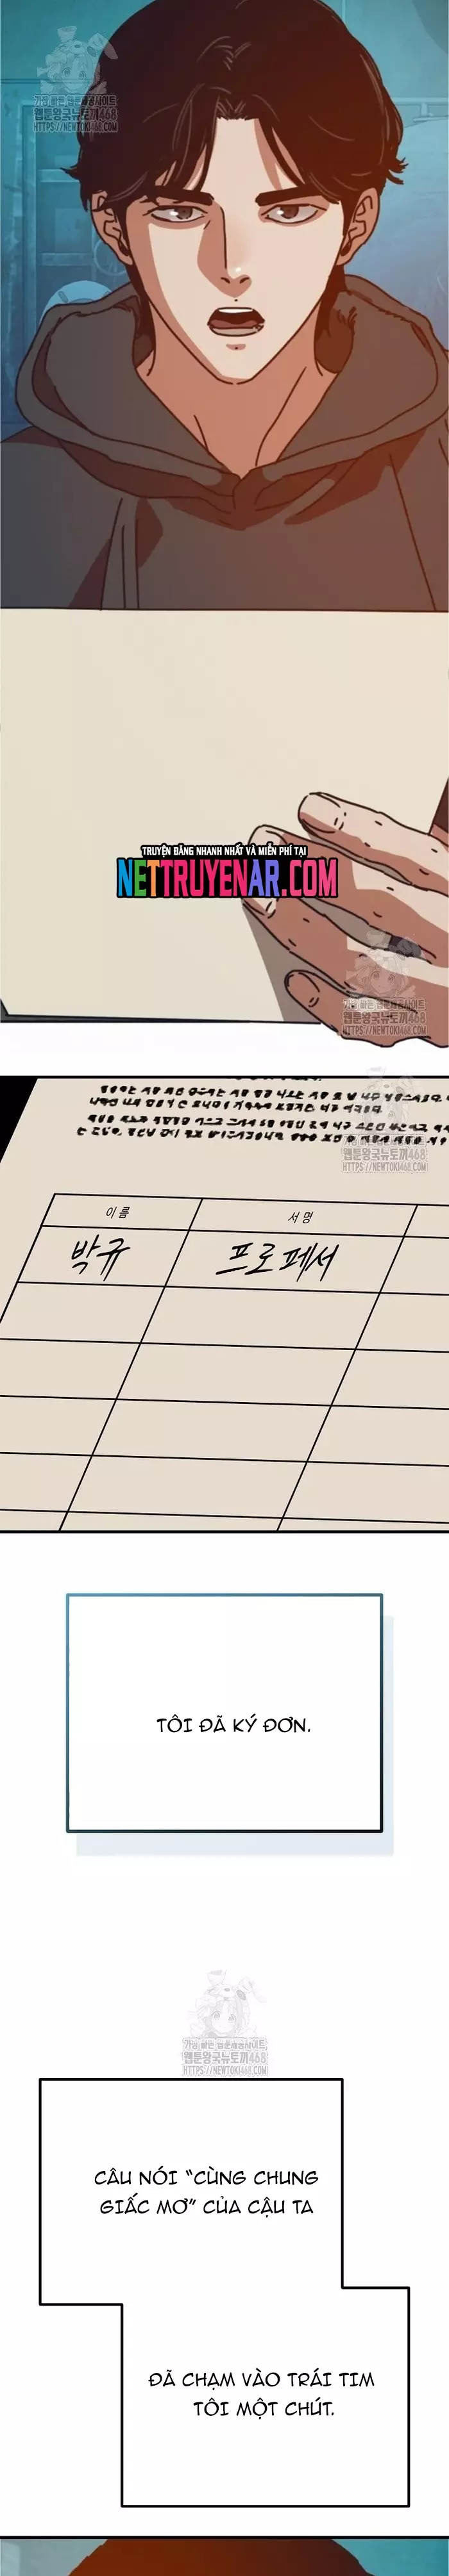 가장 빠른 웹툰사이트
웹툰왕국뉴토끼468
HTTPS://NEWTOKI.COM
TRUYỆN ĐĂNG NHANH NHẤT VÀ MIỄN PHÍ TẠI
NETTRUYENAR.COM
가장 빠른 웹툰사이트
웹툰왕국뉴토끼468
HTTPS://NEWTOKI.COM
웹툰왕국뉴토끼468
HTTPS://NEWTOKI.COM
이름 서명
박규 프로페서
TÔI ĐÃ KÝ ĐƠN.
가장 빠른 웹툰사이트
웹툰왕국뉴토끼468
HTTPS://NEWTOKI.COM
CÂU NÓI “CÙNG CHUNG
GIẤC MƠ” CỦA CẬU TA
ĐÃ CHẠM VÀO TRÁI TIM
TÔI MỘT CHÚT.